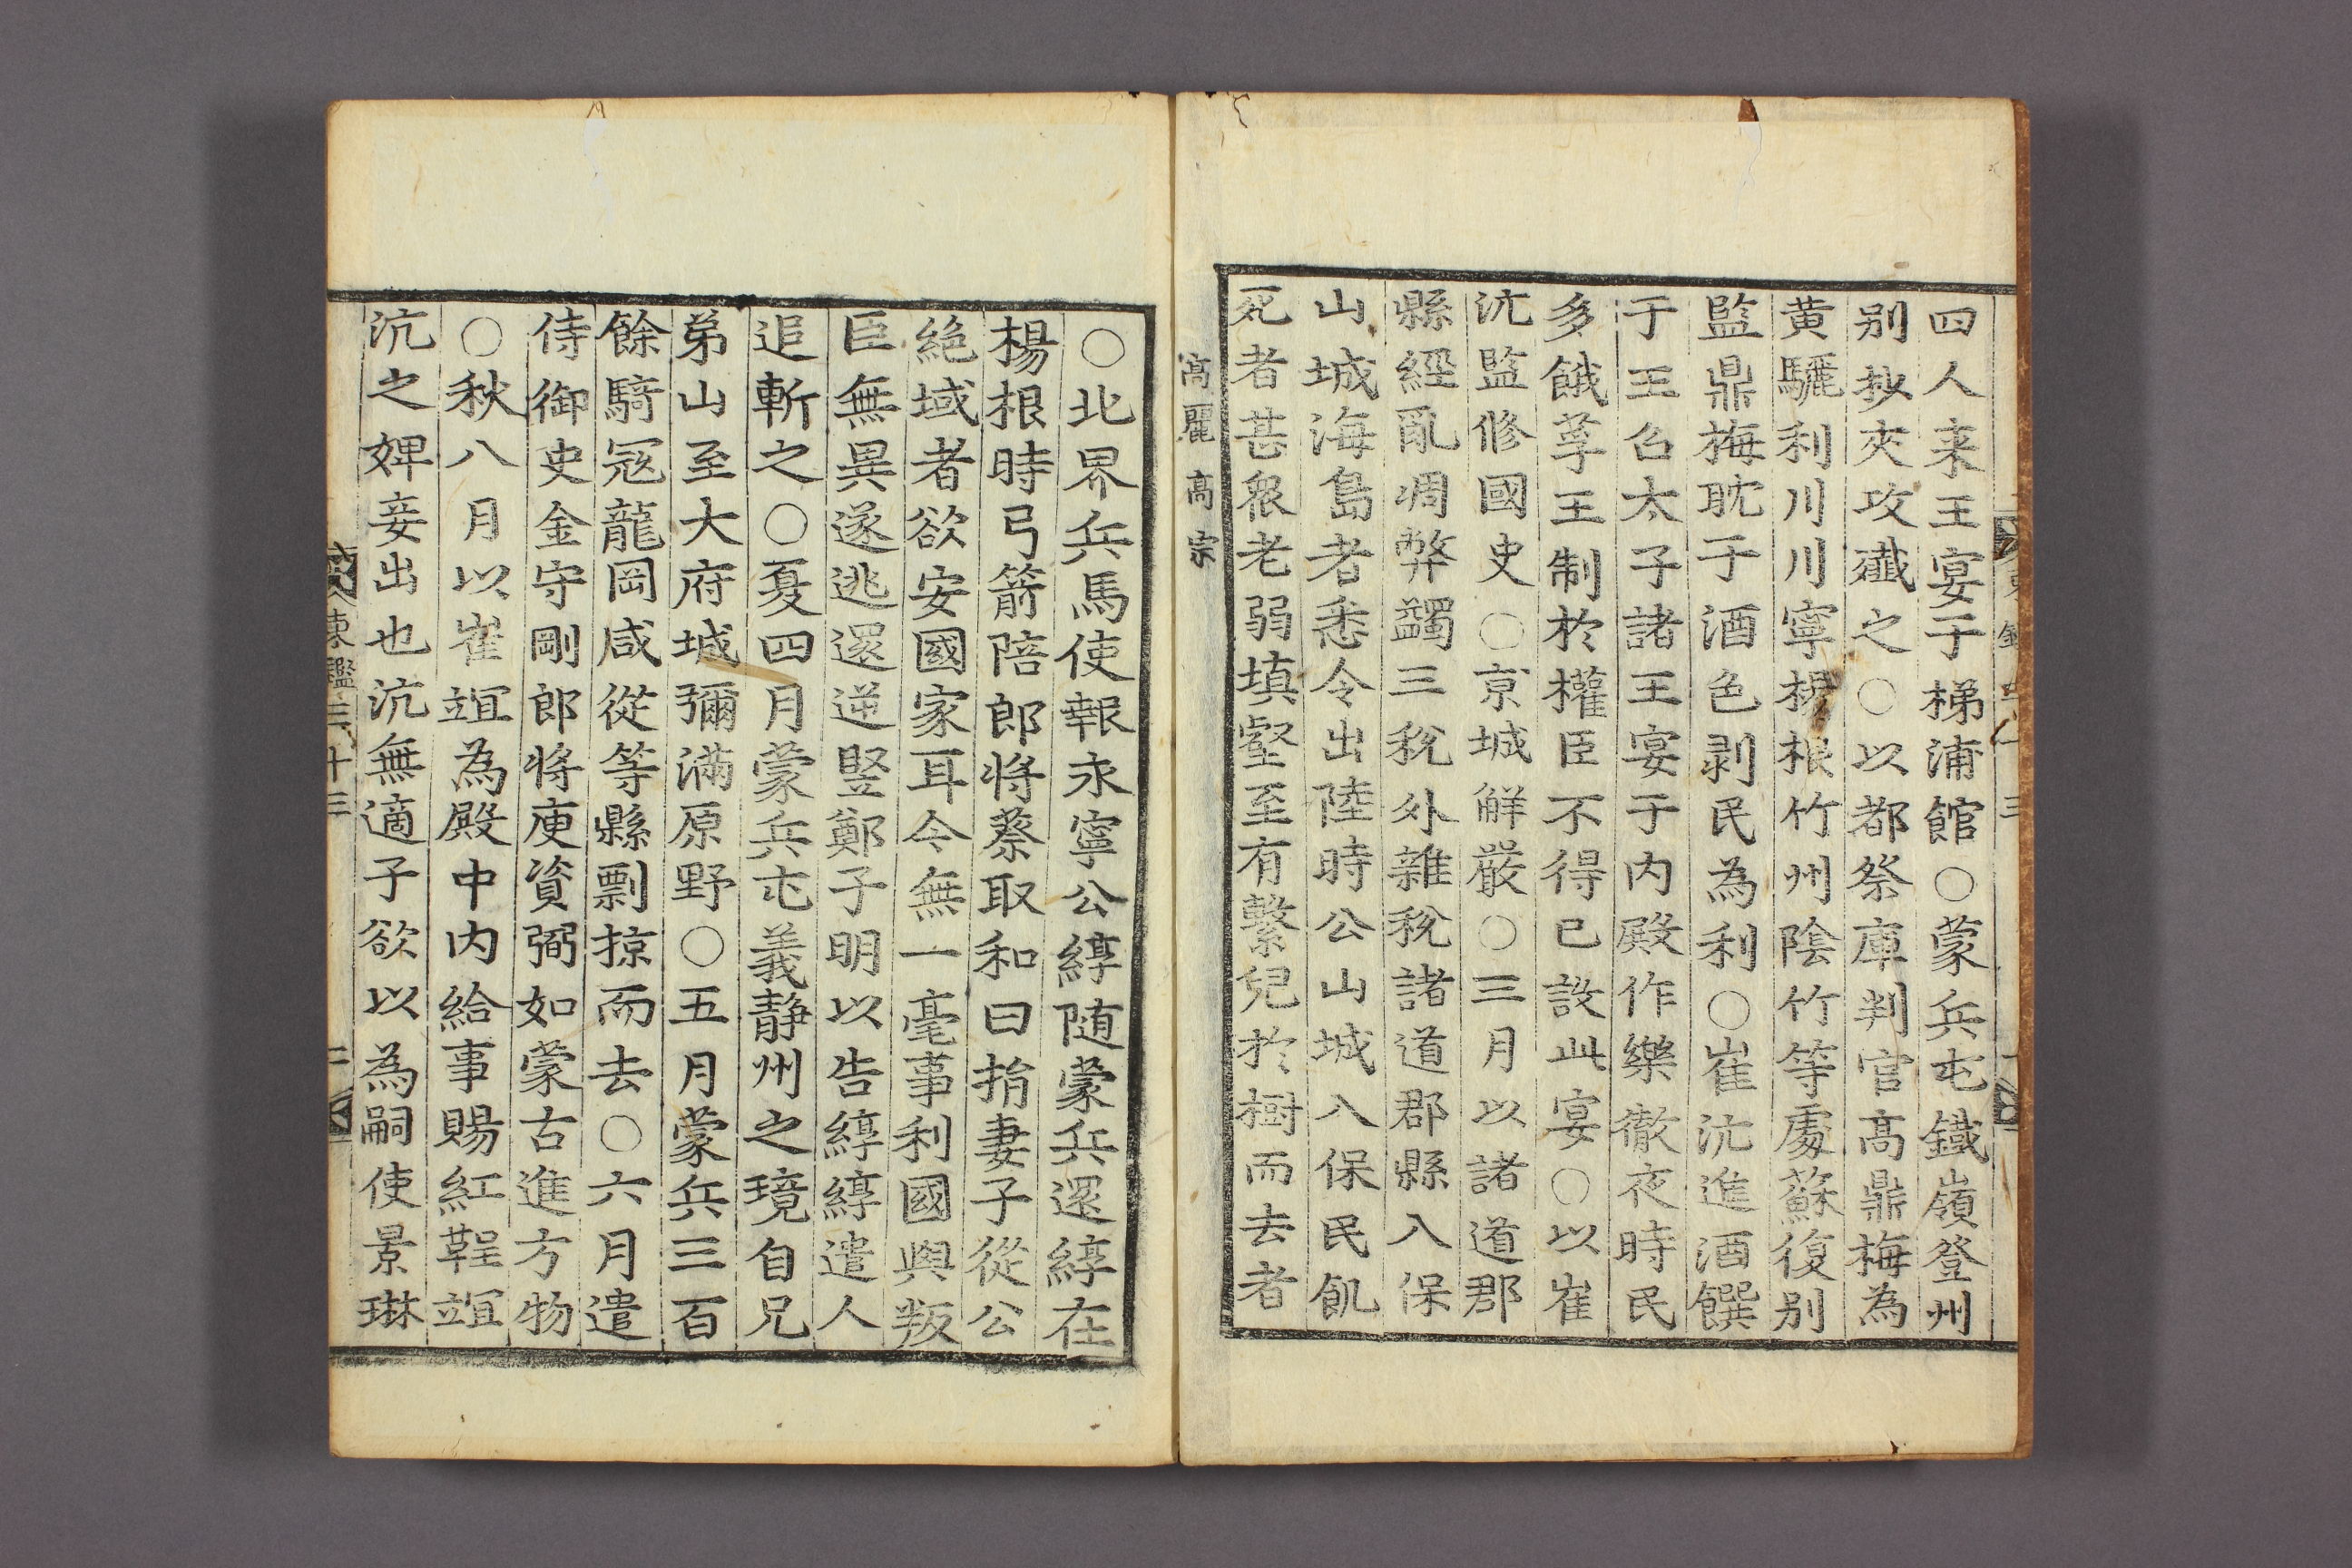 四人来王宴于梯浦館○蒙兵屯鐵嶺登州
别抄夾攻殱之○以都祭庫判官髙鼎梅為
黄驪利川川寧楊根竹州陰竹等處蘇復别
監鼎梅耽于酒色剥民為利○崔沆進酒饌
于王召太子諸王宴于内殿作樂徹夜時民
多餓莩王制於權臣不得已設此宴○以崔
沆監修國史○京城解嚴○三月以諸道郡
縣經亂凋弊蠲三稅外雜稅諸道郡縣入保
山城海島者悉令出陸時公山城入保民飢
死者甚衆老弱填壑至有繫兒於樹而去者
髙麗髙宗
○北界兵馬使報永寧公綧随蒙兵還綧在
楊根時弓箭陪郎將蔡取和曰捐妻子從公
絶域者欲安國家耳今無一毫事利國與叛
臣無異遂逃還逆竪鄭子明以告綧綧遣人
追斬之○夏四月蒙兵屯義静州之境自兄
弟山至大府城彌滿原野○五月蒙兵三百
餘騎冦龍岡咸從等縣剽掠而去○六月遣
侍御史金守剛郎將庾資弼如蒙古進方物
○秋八月以崔竩為殿中内給事賜紅鞓竩
沆之婢妾出也沆無適子欲以為嗣使景琳
東鑑三十三
二